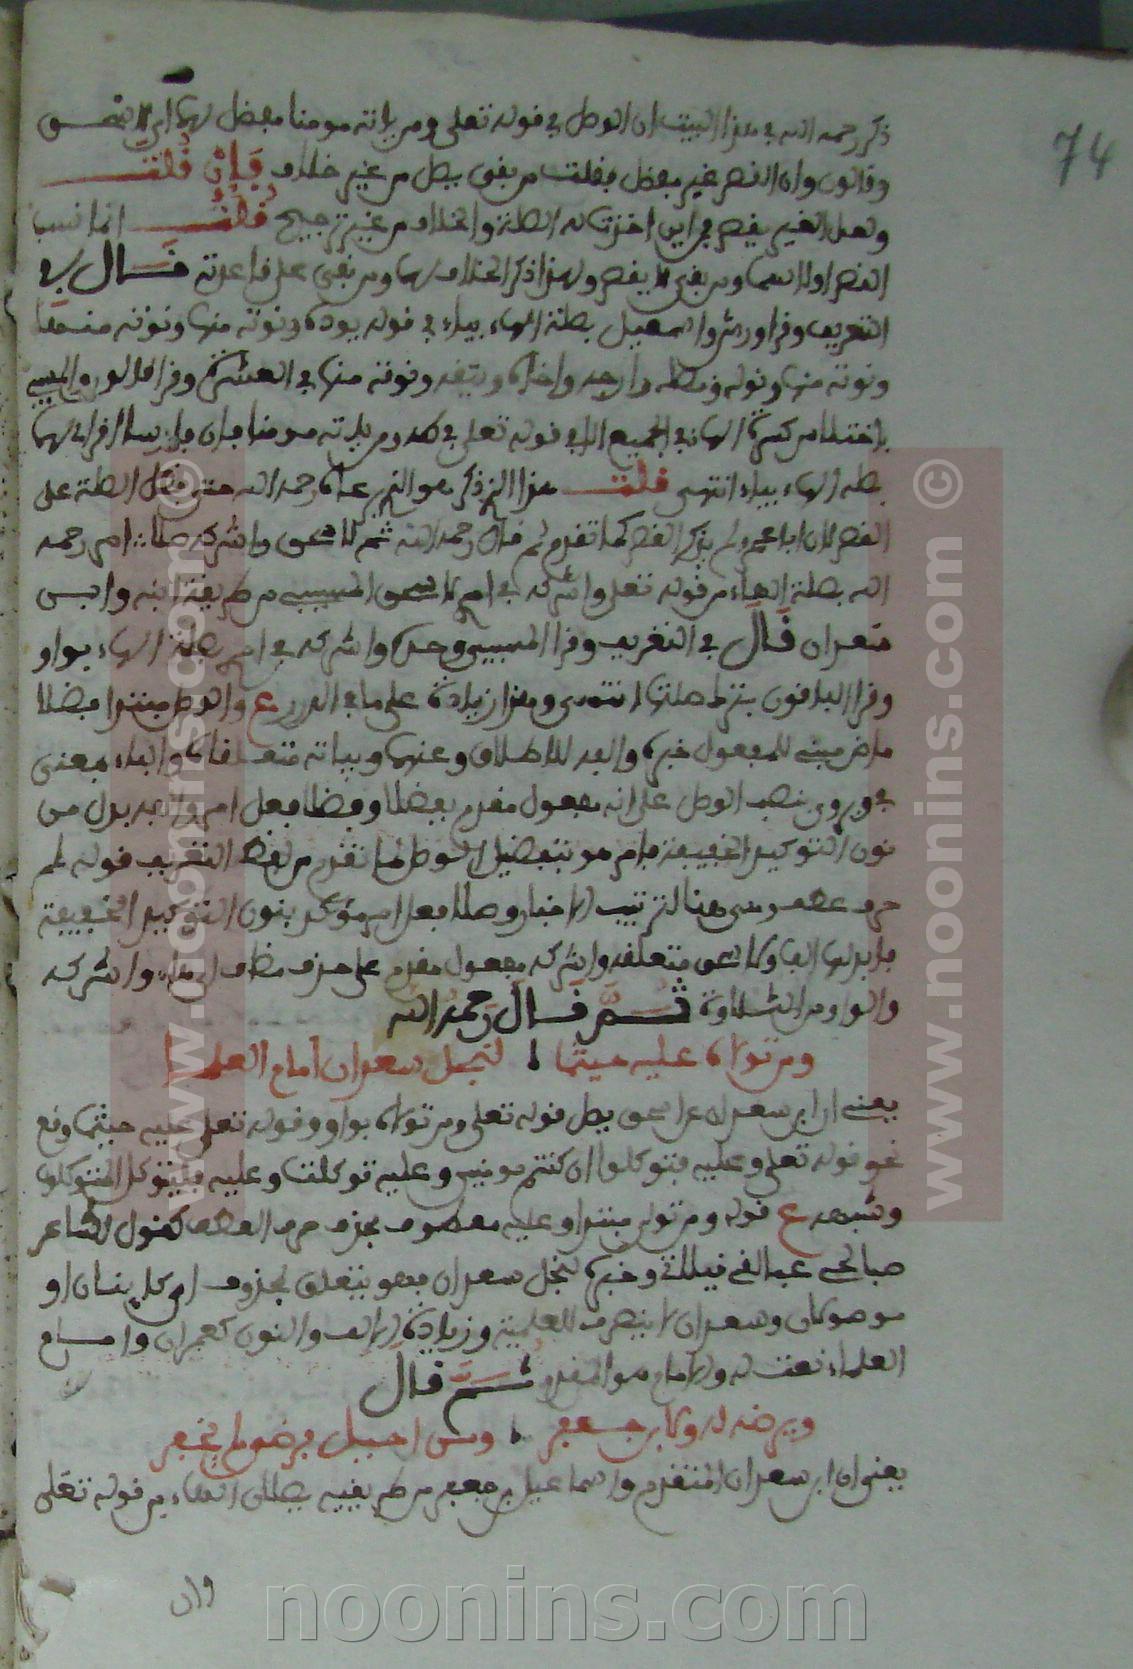 74
ذكر رحمه الله في هذا البيت ان الوصل في قوله تعلى ومن ياته مومنا مفضل لهما اي لاسحق
وقالون وان القصر غير مفضل فقلت من بقي يصل من غير خلاف فإن قلت
وهل الغير يقصر من اين اخذت له الصلة والخلاف من غير ترجيح قلت انما نسب
القصر اولا لهما ومن بقي لا يقصر ولهذا ذكر الخلاف لهما ومن بقي على قاعدته قال في
التعريف وقرا ورش واسمعيل بصلة الهاء بياء في قوله يوده ونوته منها ونوته منها
ونوته منها ونوله ونصله وارجه واخاه ويتقه ونوته منها في العشرة وقرا قالون والمسيبي
باختلاس كسرة الهاء في الجميع الا في قوله تعلى في طه ومن ياته مومنا فان قرا لهما
بصلة الهاء بياء انتهى قلت هذا الذي ذكر هو الذي رحمه الله حتى فضل الصلة على
القصر لان ابا عمرو لم يذكر القصر كما تقدم ثم قال رحمه الله ثم لاسحق واشركه صلا امر رحمه
الله بصلة الهاء من قوله تعلى واشركه في امري لاسحق المسيبي من طريقة ابنه وابن
سعدان قال في التعريف وقرا المسيبي وحده واشركه في امري بصلة الهاء بواو
وقرا الباقون بترك صلتها انتهى وهذا زيادة على ما في الدرر ع والوصل مبتدا فضلا
ماض مبني للمفعول خبره والفه للاطلاق وعنهما وبياته متعلقان والباء بمعنى
في وروي بنصب الوصل على انه مفعول مقدم بفضلا وفضلا فعل امر والفه بدل من
نون التوكيد الخفيفة فامر هو بتفضيل الوصل لما تقدم من لفظ التعريف قوله ثم
حرف عطف وهي هنا لترتيب الاخبار وصلا فعل امر مؤكد بنون التوكيد الخفيفة
فابدلها الفا ولاسحق متعلقه واشركه مفعول مقدم على حذف مضاف اي هاء واشركه
والواو من التلاوة ثم قال رحمه الله
ومن تولاه عليه حيثما لنجل سعدان امام العلما
يعني ان ابن سعدان عن اسحق يصل قوله تعلى ومن تولاه بواو وقوله تعلى عليه حيثما وقع
نحو قوله تعلى وعليه فتوكلوا ان كنتم مومنين وعليه توكلت وعليه فليتوكل المتوكلون
وشبهه ع قوله ومن تولاه مبتدا وعليه معطوف بحذف حرف العطف كقول الشاعر
وخبره لنجل سعدان فهو يتعلق بمحذوف اي كاينان او
موصولان وسعدان لا ينصرف للعلمية وزيادة الالف والنون كعمران وامام
العلماء نعت له والامام هو المقدم ثم قال
ويرضه له ولابن جعفر
يعني ان ابن سعدان المتقدم واسماعيل بن جعفر من طريقيه يصلان الهاء من قوله تعلى
وان
© www.noonins.com
© www.noonins.com
noonins.com